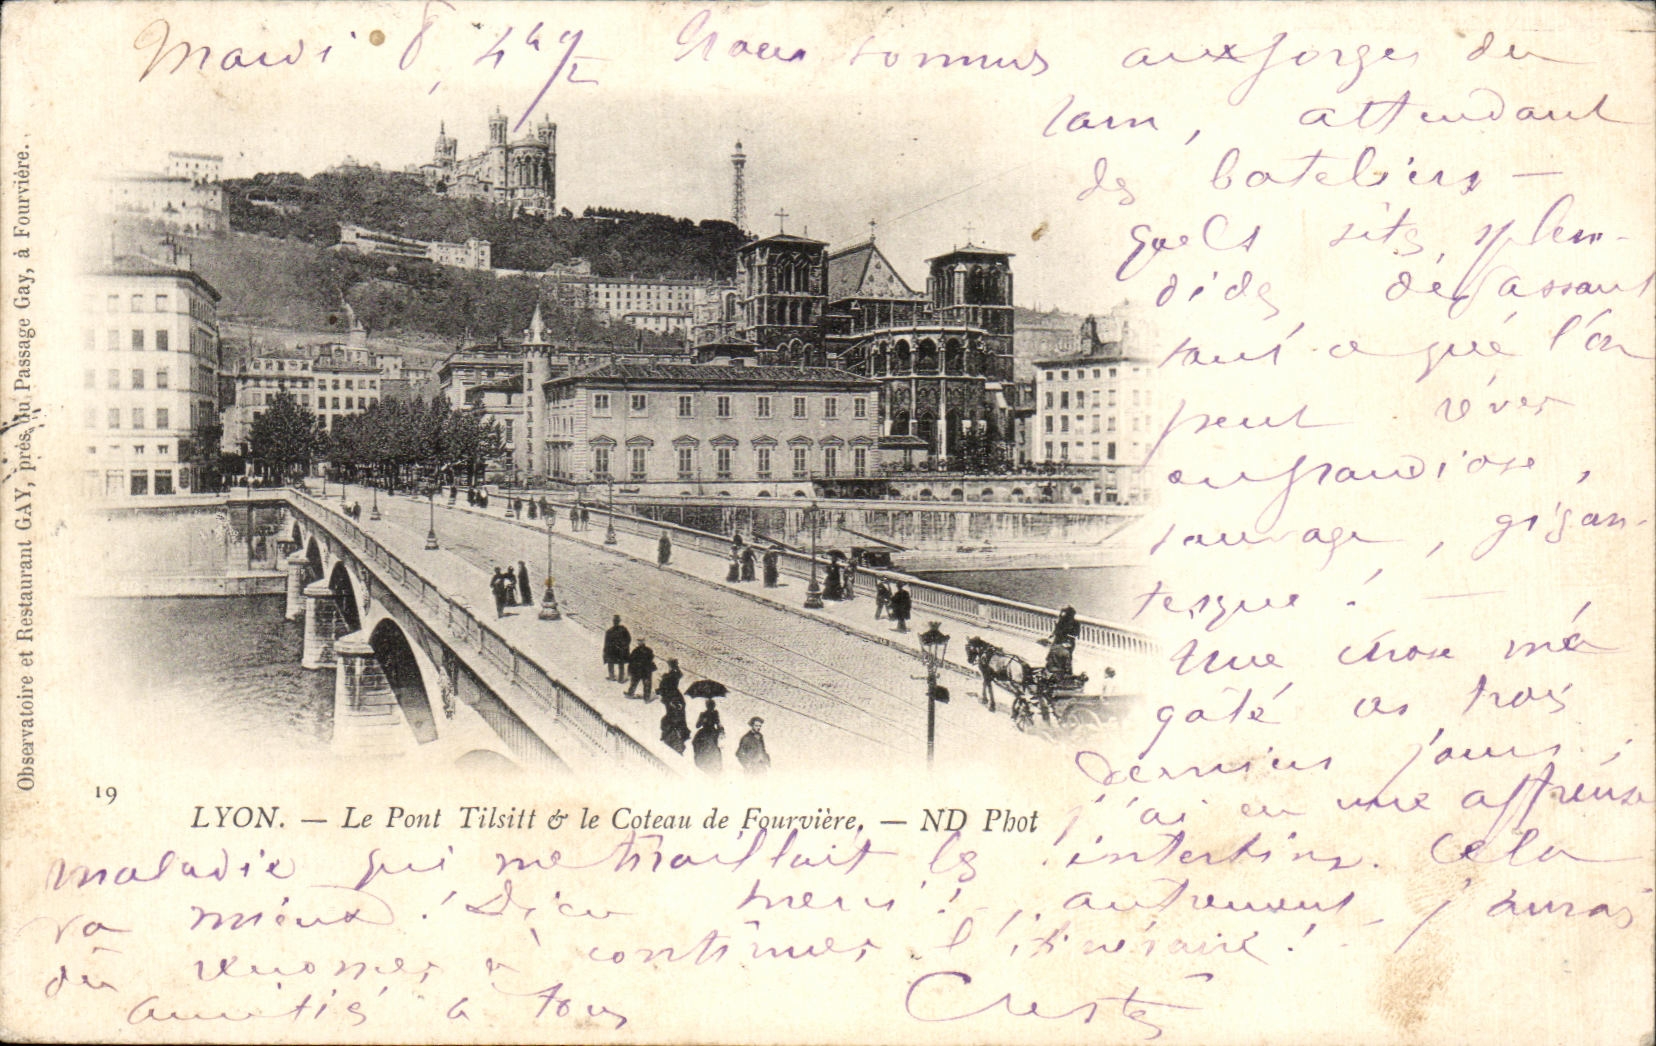 Mardi 8, 4h 1/2 Nous sommes aux gorges du
Tarn, attendant
des bateliers —
quels sites splen-
dides dépassant
tout ce que l'on
peut rêver
en grandiose,
sauvage, gigan-
tesque ! —
Une chose m'a
gâté ces trois
derniers jours ;
j'ai eu une affreuse
maladie qui me travaillait les intestins. Cela
va mieux ! Dieu merci ! autrement j'aurais
dû renoncer à continuer l'itinéraire !
amitiés à tous
Observatoire et Restaurant GAY, près du Passage Gay, à Fourvière.
19
LYON. — Le Pont Tilsitt & le Coteau de Fourvière. — ND Phot